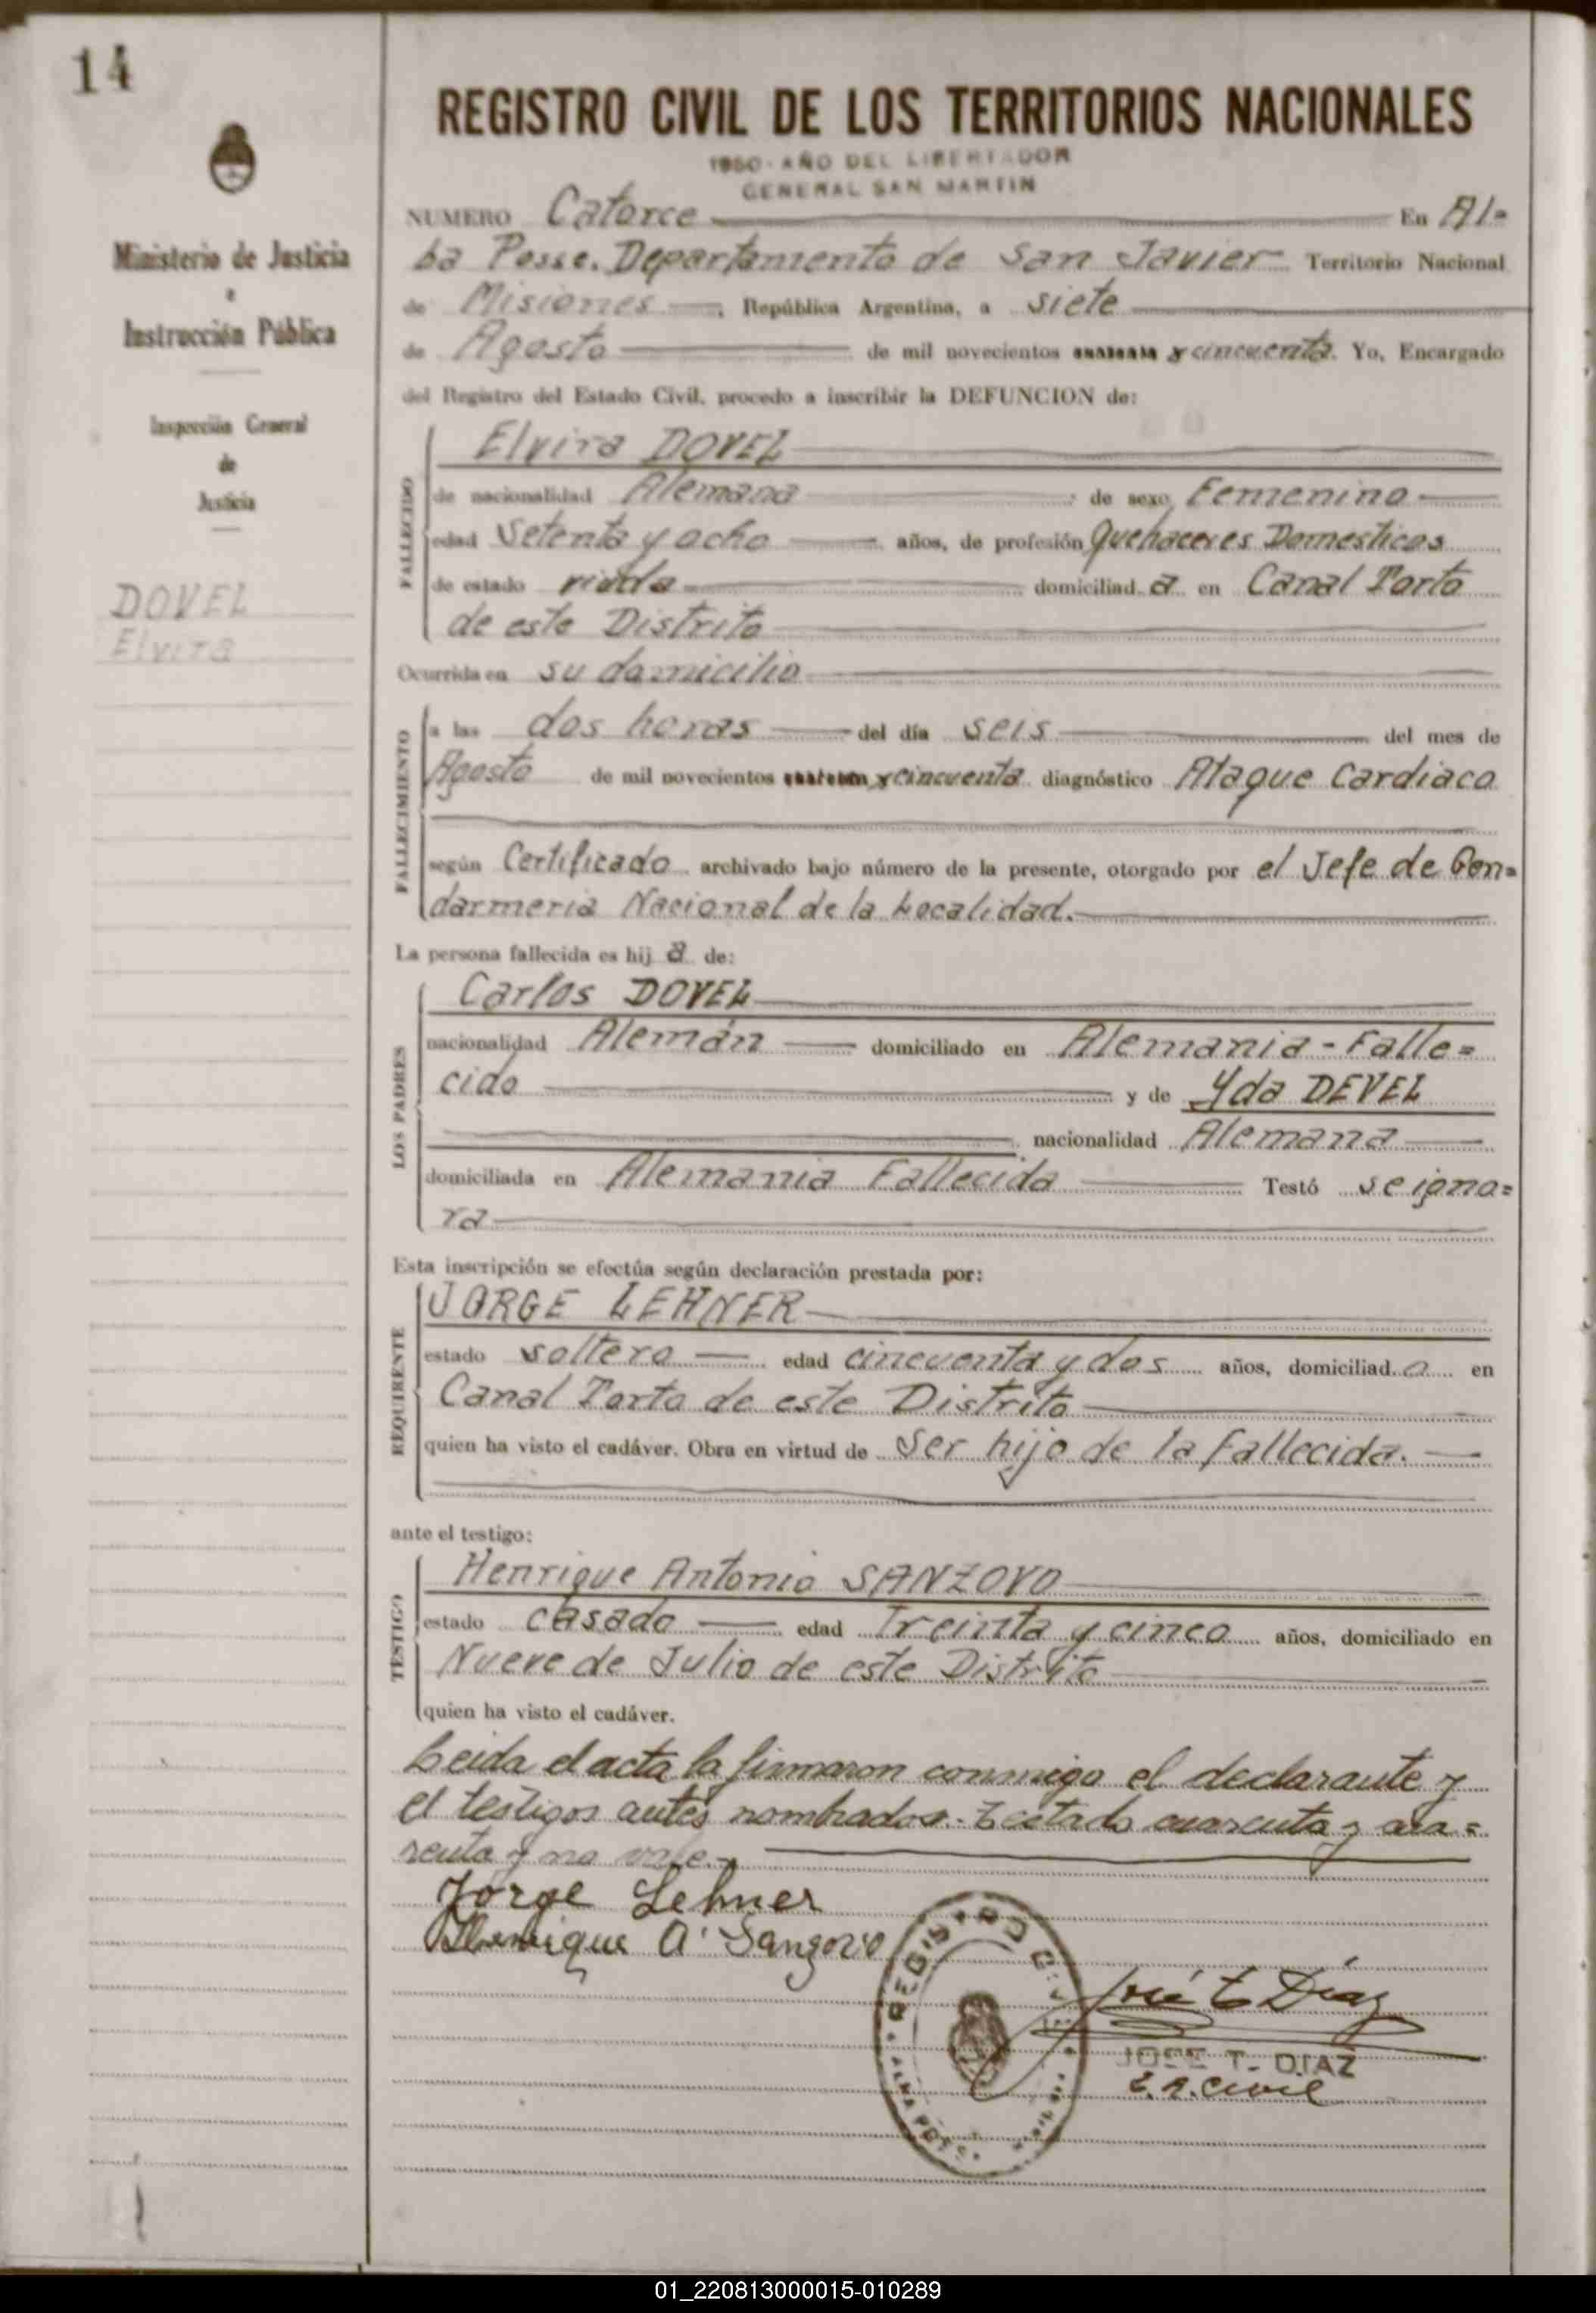 14
REGISTRO CIVIL DE LOS TERRITORIOS NACIONALES
1950 - AÑO DEL LIBERTADOR
GENERAL SAN MARTIN
Ministerio de Justicia
e
Instrucción Pública
Inspección General
de
Justicia
DOVEL
Elvira
NUMERO Catorce En Al=
ba Posse. Departamento de San Javier Territorio Nacional
de Misiones, República Argentina, a siete
de Agosto de mil novecientos cuarenta y cincuenta. Yo, Encargado
del Registro del Estado Civil, procedo a inscribir la DEFUNCION de:
FALLECIDO
Elvira DOVEL
de nacionalidad Alemana de sexo Femenino
edad Setenta y ocho años, de profesión Quehaceres Domesticos
de estado viuda domiciliad a en Canal Torto
de este Distrito
Ocurrida en su domicilio
FALLECIMIENTO
a las dos horas del día seis del mes de
Agosto de mil novecientos cuarenta y cincuenta diagnóstico Ataque Cardiaco
según Certificado archivado bajo número de la presente, otorgado por el Jefe de Gen=
darmeria Nacional de la Localidad.
La persona fallecida es hij a de:
LOS PADRES
Carlos DOVEL
nacionalidad Alemán domiciliado en Alemania - Falle=
cido y de Yda DEVEL
nacionalidad Alemana
domiciliada en Alemania Fallecida Testó se igno=
ra
Esta inscripción se efectúa según declaración prestada por:
REQUIRENTE
JORGE LEHNER
estado soltero edad cincuenta y dos años, domiciliad o en
Canal Torto de este Distrito
quien ha visto el cadáver. Obra en virtud de Ser hijo de la fallecida.
ante el testigo:
TESTIGO
Henrique Antonio SANZOVO
estado casado edad Treinta y cinco años, domiciliado en
Nueve de Julio de este Distrito
quien ha visto el cadáver.
Leida el acta la firmaron conmigo el declarante y
el testigos antes nombrados. Testado cuarenta y cua=
renta y no vale.
Jorge Lehner
Henrique A. Sanzovo
REGISTRO CIVIL
ALBA POSSE
José T Diaz
JOSE T. DIAZ
E. R. Civil
01_220813000015-010289